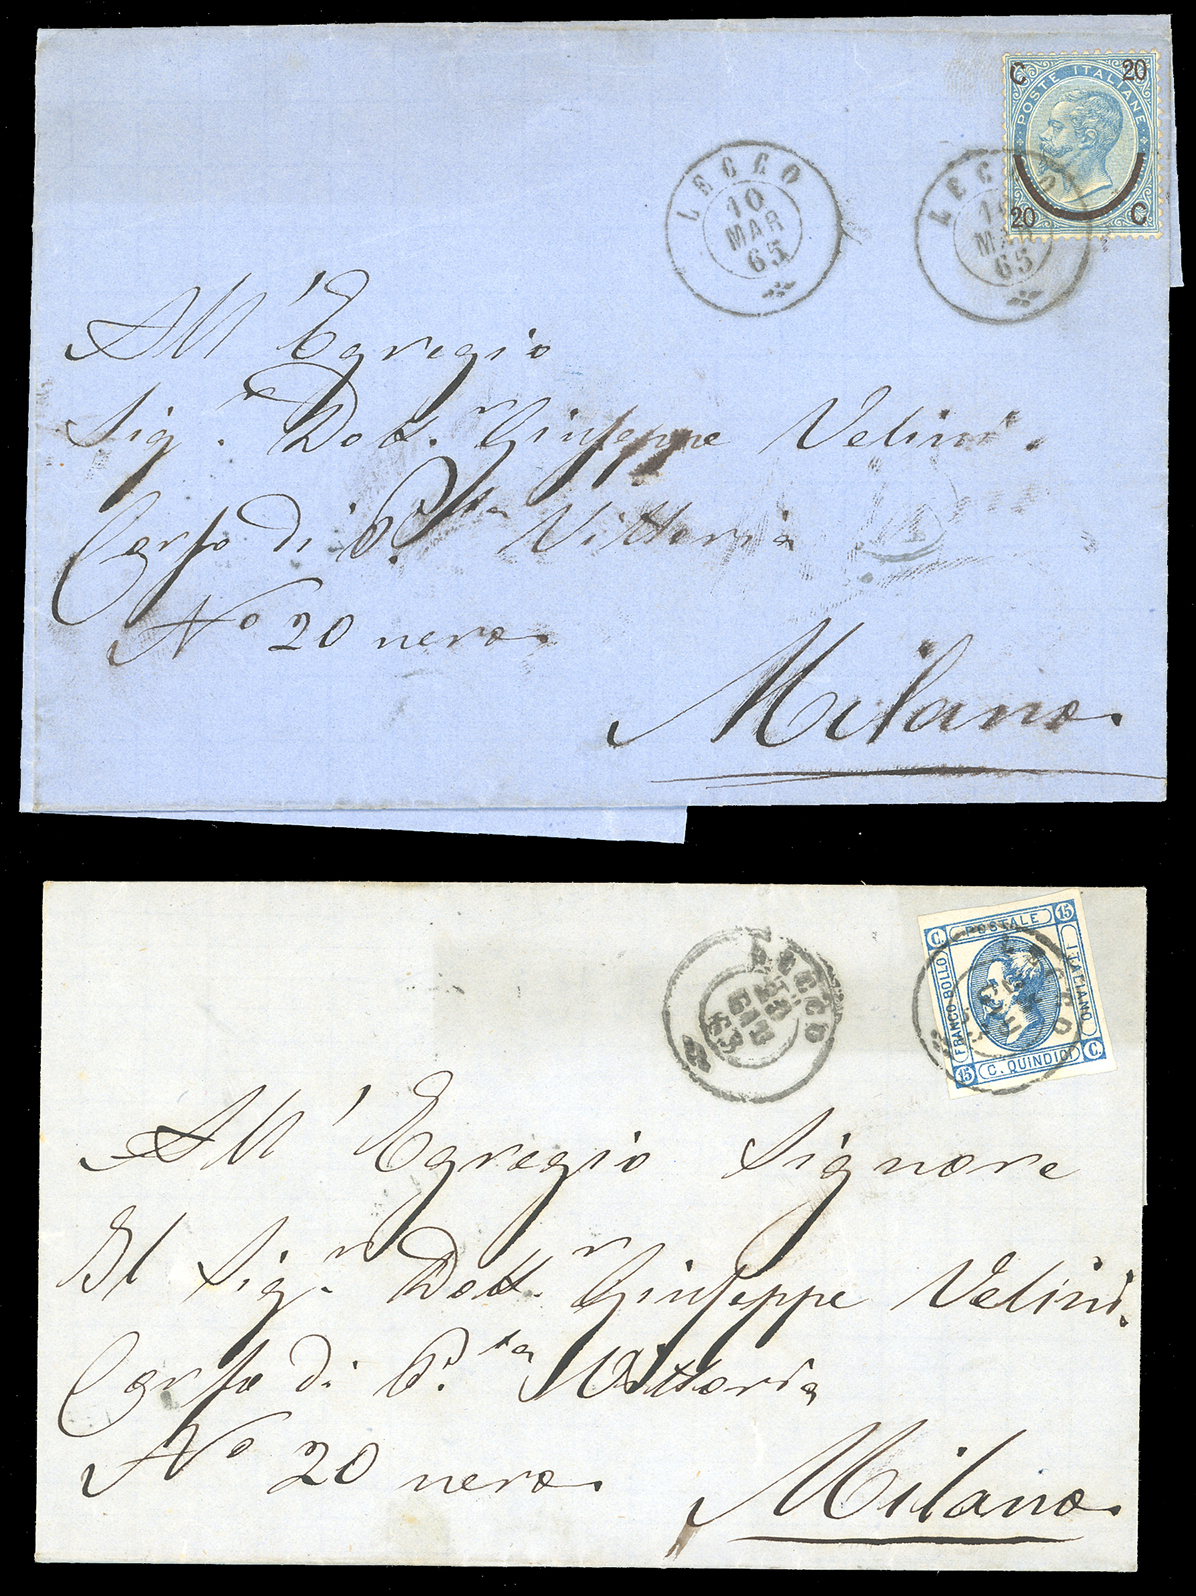 C 20
POSTE ITALIANE
20 C
LECCO
10
MAR
65
LECCO
MAR
65
All' Egregio
Sig.r Dott.r Giuseppe Velini.
Corso di P.ta Vittoria
No 20 nero.
Milano.
C. POSTALE 15
FRANCO BOLLO
ITALIANO
15 C. QUINDICI C.
LECCO
23
GEN
63
LECCO
All' Egregio Signore
Il Sig.r Dott.r Giuseppe Velini.
Corso di P.ta Vittoria
No 20 nero.
Milano.